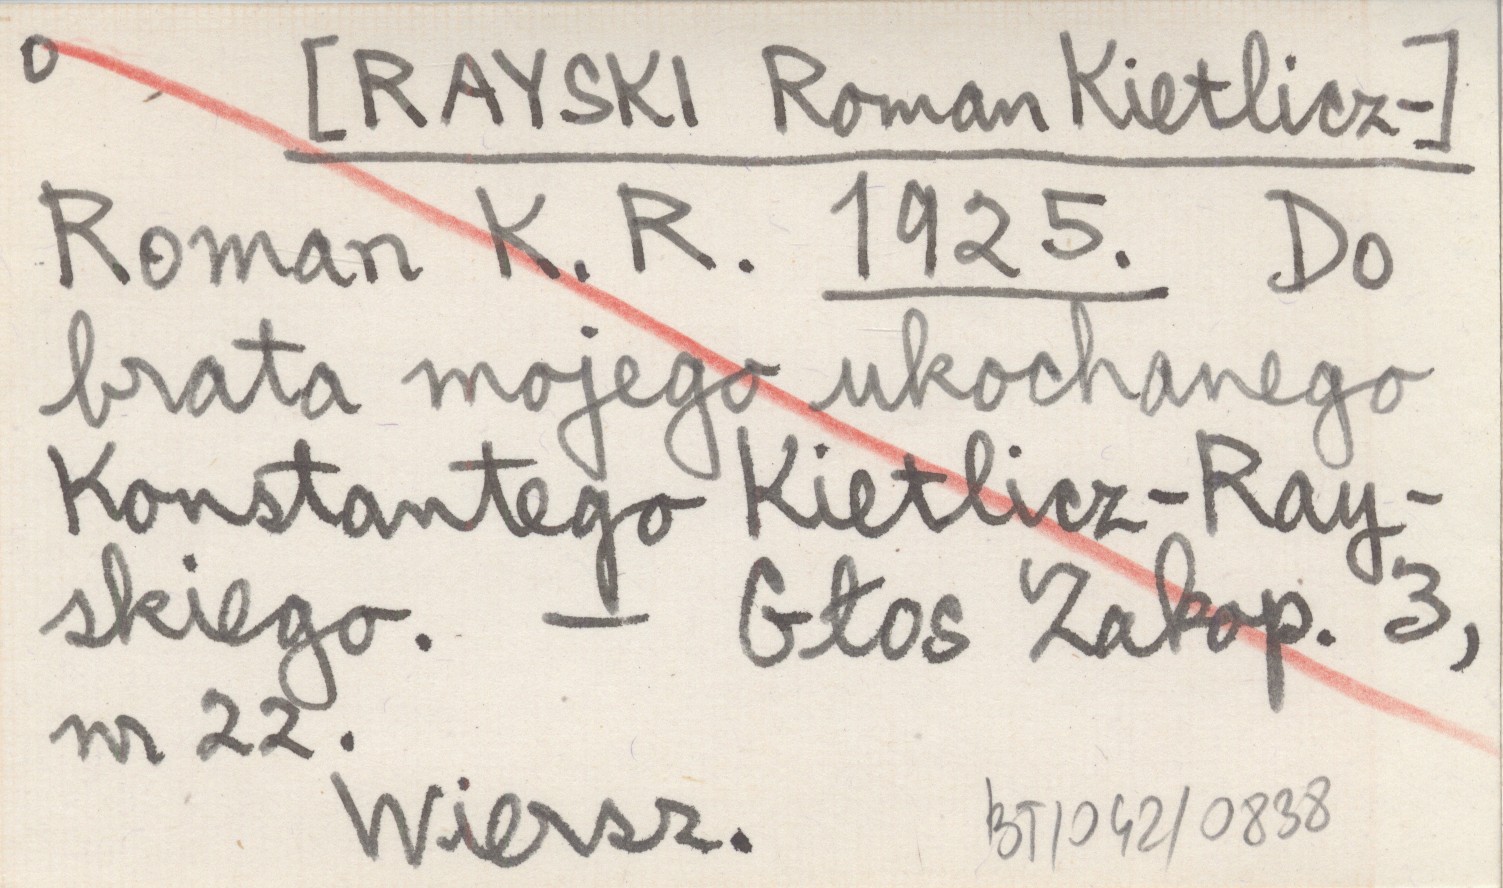 o [RAYSKI Roman Kietlicz-]
Roman K. R. 1925. Do
brata mojego ukochanego
Konstantego Kietlicz-Ray-
skiego. — Głos Zakop. 3,
nr 22.
Wiersz.
BT/042/0838